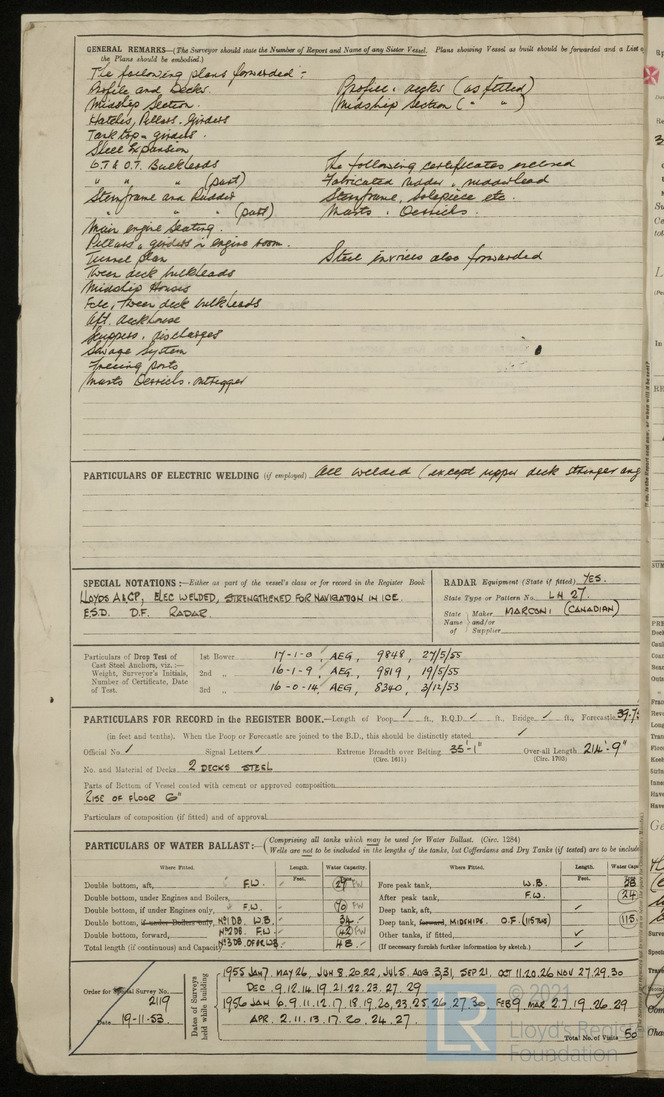 GENERAL REMARKS—(The Surveyor should state the Number of Report and Name of any Sister Vessel. Plans showing Vessel as built should be forwarded and a List of
the Plans should be embodied.)
The following plans forwarded :-
Profile and Decks. Profile & decks (as fitted)
Midship Section. Midship Section ( " " )
Hatches, Pillars. Girders
Tank top & girders.
Shell Expansion
W.T. & O.T. Bulkheads The following certificates enclosed
" " " (part) Fabricated rudder, rudderhead
Sternframe and Rudder Sternframe, solepiece etc.
" " " (part) Masts & Derricks.
Main engine Seating.
Pillars & girders in engine room.
Tunnel plan Steel invoices also forwarded
Tween deck bulkheads
Midship Houses
Fcle, Tween deck bulkheads
Aft. deckhouse
Scuppers & discharges
Sewage System
Freeing ports
Masts Derricks. outrigger
PARTICULARS OF ELECTRIC WELDING (if employed) All welded (except upper deck stringer ang
SPECIAL NOTATIONS :—Either as part of the vessel's class or for record in the Register Book
LLOYDS A&CP, ELEC WELDED, STRENGTHENED FOR NAVIGATION IN ICE.
E.S.D. D.F. RADAR.
RADAR Equipment (State if fitted) YES.
State Type or Pattern No. LN 27.
State Name of Maker and/or Supplier MARCONI (CANADIAN)
Particulars of Drop Test of Cast Steel Anchors, viz. :— Weight, Surveyor's Initials, Number of Certificate, Date of Test.
1st Bower 17-1-0, AEG, 9848, 27/5/55
2nd " 16-1-9, AEG, 9819, 19/5/55
3rd " 16-0-14, AEG, 8340, 3/12/53
PARTICULARS FOR RECORD in the REGISTER BOOK.—Length of Poop ✓ ft., R.Q.D. ✓ ft., Bridge ✓ ft., Forecastle 39.7
(in feet and tenths). When the Poop or Forecastle are joined to the B.D., this should be distinctly stated ✓
Official No. ✓ Signal Letters ✓ Extreme Breadth over Belting (Circ. 1611) 35'-1" Over-all Length (Circ. 1703) 214'-9"
No. and Material of Decks 2 DECKS STEEL
Parts of Bottom of Vessel coated with cement or approved composition
RISE OF FLOOR 6"
Particulars of composition (if fitted) and of approval
PARTICULARS OF WATER BALLAST:— (Comprising all tanks which may be used for Water Ballast. (Circ. 1284)
Wells are not to be included in the lengths of the tanks, but Cofferdams and Dry Tanks (if tested) are to be include
Where Fitted. Length. Water Capacity. Where Fitted. Length. Water Capa
Feet. Feet.
Double bottom, aft, F.W. 27 FW Fore peak tank, W.B.
Double bottom, under Engines and Boilers, After peak tank, F.W. 24
Double bottom, if under Engines only, F.W. 70 FW Deep tank, aft, ✓
Double bottom, if under Boilers only, Nº1 DB. W.B. 34 Deep tank, forward, MIDSHIPS. O.F. (115 TONS) 115
Double bottom, forward, Nº2 DB. F.W. 42 FW Other tanks, if fitted, ✓
Total length (if continuous) and Capacity Nº3 DB. OF OR WB. 48 (If necessary furnish further information by sketch.) ✓
Order for Special Survey No. 2119
Date 19-11-53.
Dates of Surveys held while building
1955 JAN 7. MAY 26, JUN 8.20.22, JUL 5. AUG 3,31, SEP 21. OCT 11.20.26 NOV 27.29.30
DEC. 9.12.14.19.21.22.23.27.29
1956 JAN 6.9.11.12.17.18.19.20.23.25.26.27.30. FEB 9. MAR 2.7.19.26.29
APR. 2.11.13.17.20.24.27.
Total No. of Visits 50
LR
© 2021
Lloyd's Register
Foundation